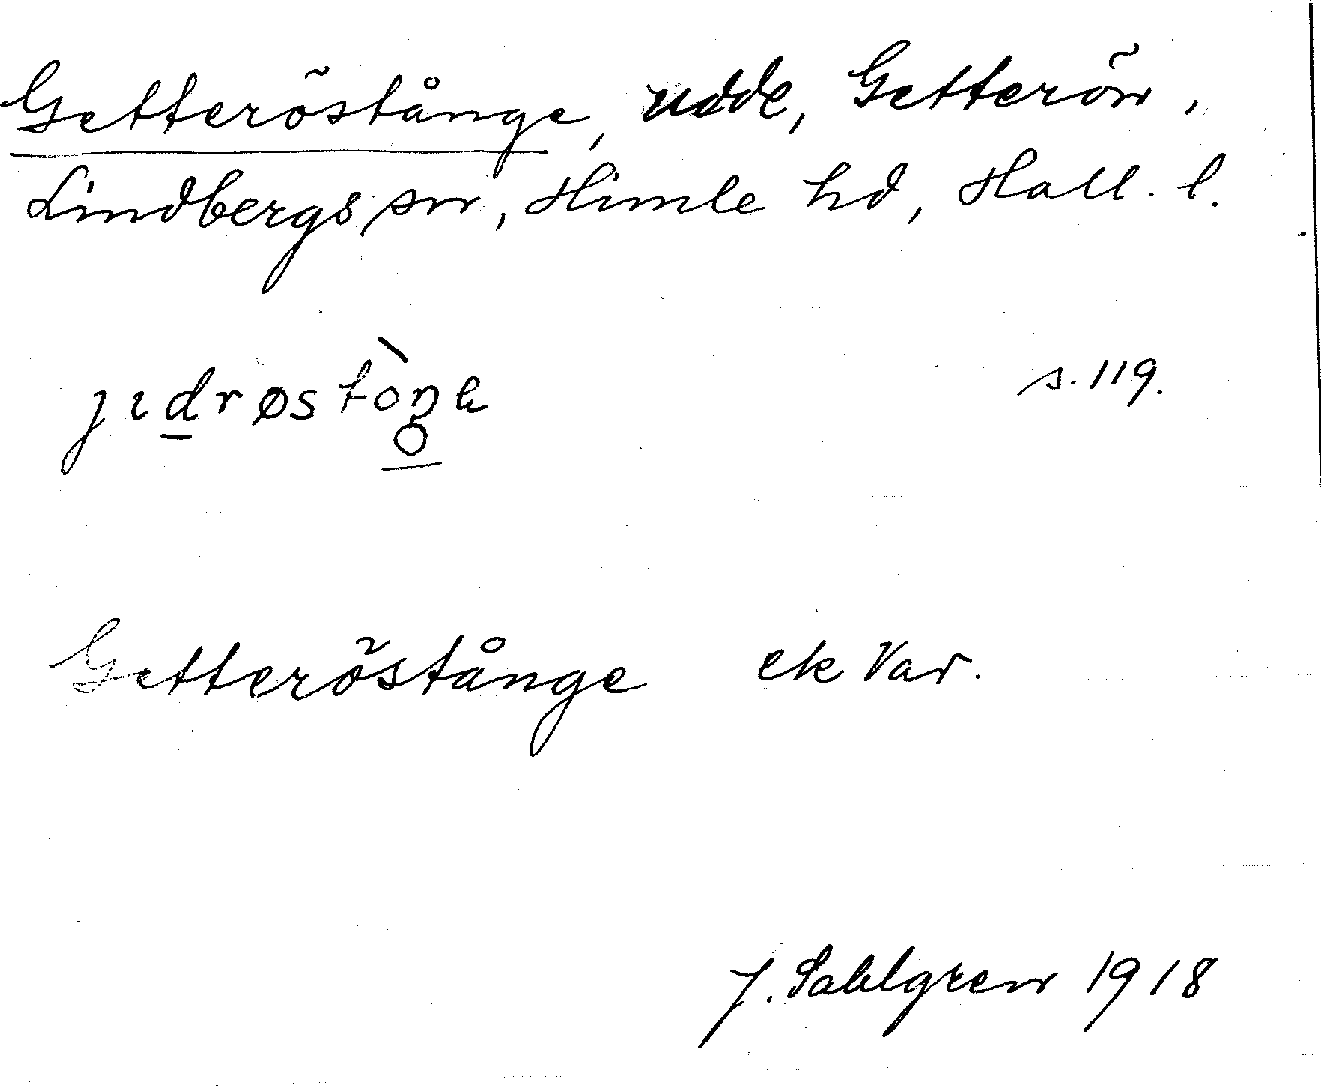 Getteröstånge, udde, Getterön,
Lindbergs sn, Himle hd, Hall. l.
jıd̲røstòŋe s. 119.
Getteröstånge ek Var.
J. Sahlgren 1918